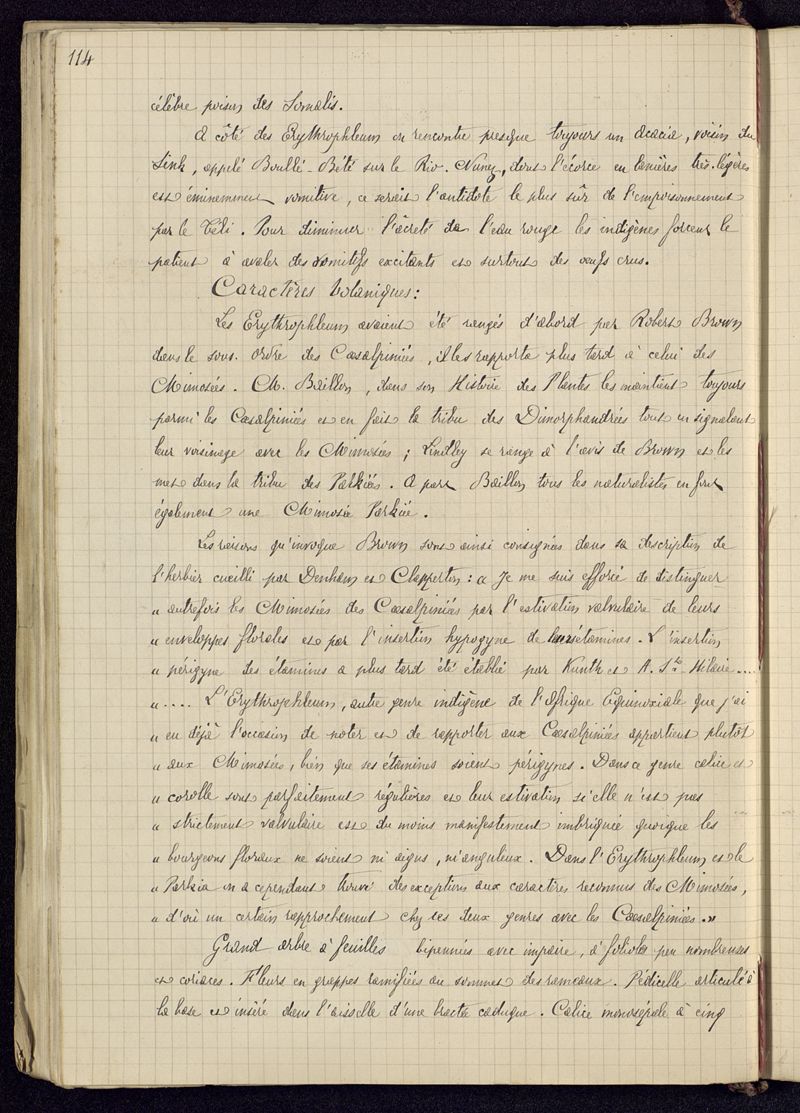 114
célèbre poison des Somalis.
A côté des Erythrophleum on rencontre presque toujours un acacia, voisin du
Sink, appelé Boullé-Bété sur le Rio-Nunez, dont l'écorce en lanières très-légères
est éminemment vomitive, ce serait l'antidote le plus sûr de l'empoisonnement
par le Téli. Pour diminuer l'âcreté de l'eau rouge les indigènes forcent le
patient à avaler des vomitifs excitants et surtout des œufs crus.
Caractères botaniques:
Les Erythrophleum avaient été rangés d'abord par Robert Brown
dans le sous-ordre des Cœsalpiniées, il les rapporta plus tard à celui des
Mimosées. M. Baillon, dans son Histoire des Plantes les maintient toujours
parmi les Cœsalpiniées et en fait la tribu des Dimorphandrées tout en signalant
leur voisinage avec les Mimosées; Lindley se range à l'avis de Brown et les
met dans la tribu des Parkiées. A part Baillon tous les naturalistes en font
également une Mimosée Parkiée.
Les raisons qu'invoque Brown sont ainsi consignées dans sa description de
l'herbier cueilli par Denham et Clapperton: « Je me suis efforcé de distinguer
" autrefois les Mimosées des Cœsalpiniées par l'estivation valvulaire de leurs
" enveloppes florales et par l'insertion hypogyne de leurs étamines. L'insertion
" périgyne des étamines a plus tard été établie par Kunth et A. Ste-Hilaire....
" .... L'Erythrophleum, autre genre indigène de l'Afrique Equinoxiale que j'ai
" eu déjà l'occasion de noter et de rapporter aux Cœsalpiniées appartient plutôt
" aux Mimosées, bien que ses étamines soient périgynes. Dans ce genre calice et
" corolle sont parfaitement régulières et leur estivation si elle n'est pas
" strictement valvulaire est du moins manifestement imbriquée quoique les
" bourgeons floraux ne soient ni aigus, ni anguleux. Dans l'Erythrophleum et le
" Parkia on a cependant trouvé des exceptions aux caractères reconnus des Mimosées,
" d'où un certain rapprochement chez ces deux genres avec les Cœsalpiniées. »
Grand arbre à feuilles bipennées avec impaire, à folioles peu nombreuses
et coriaces. Fleurs en grappes ramifiées au sommet des rameaux. Pédicelle articulé à
la base et inséré dans l'aisselle d'une bractée caduque. Calice monosépale à cinq